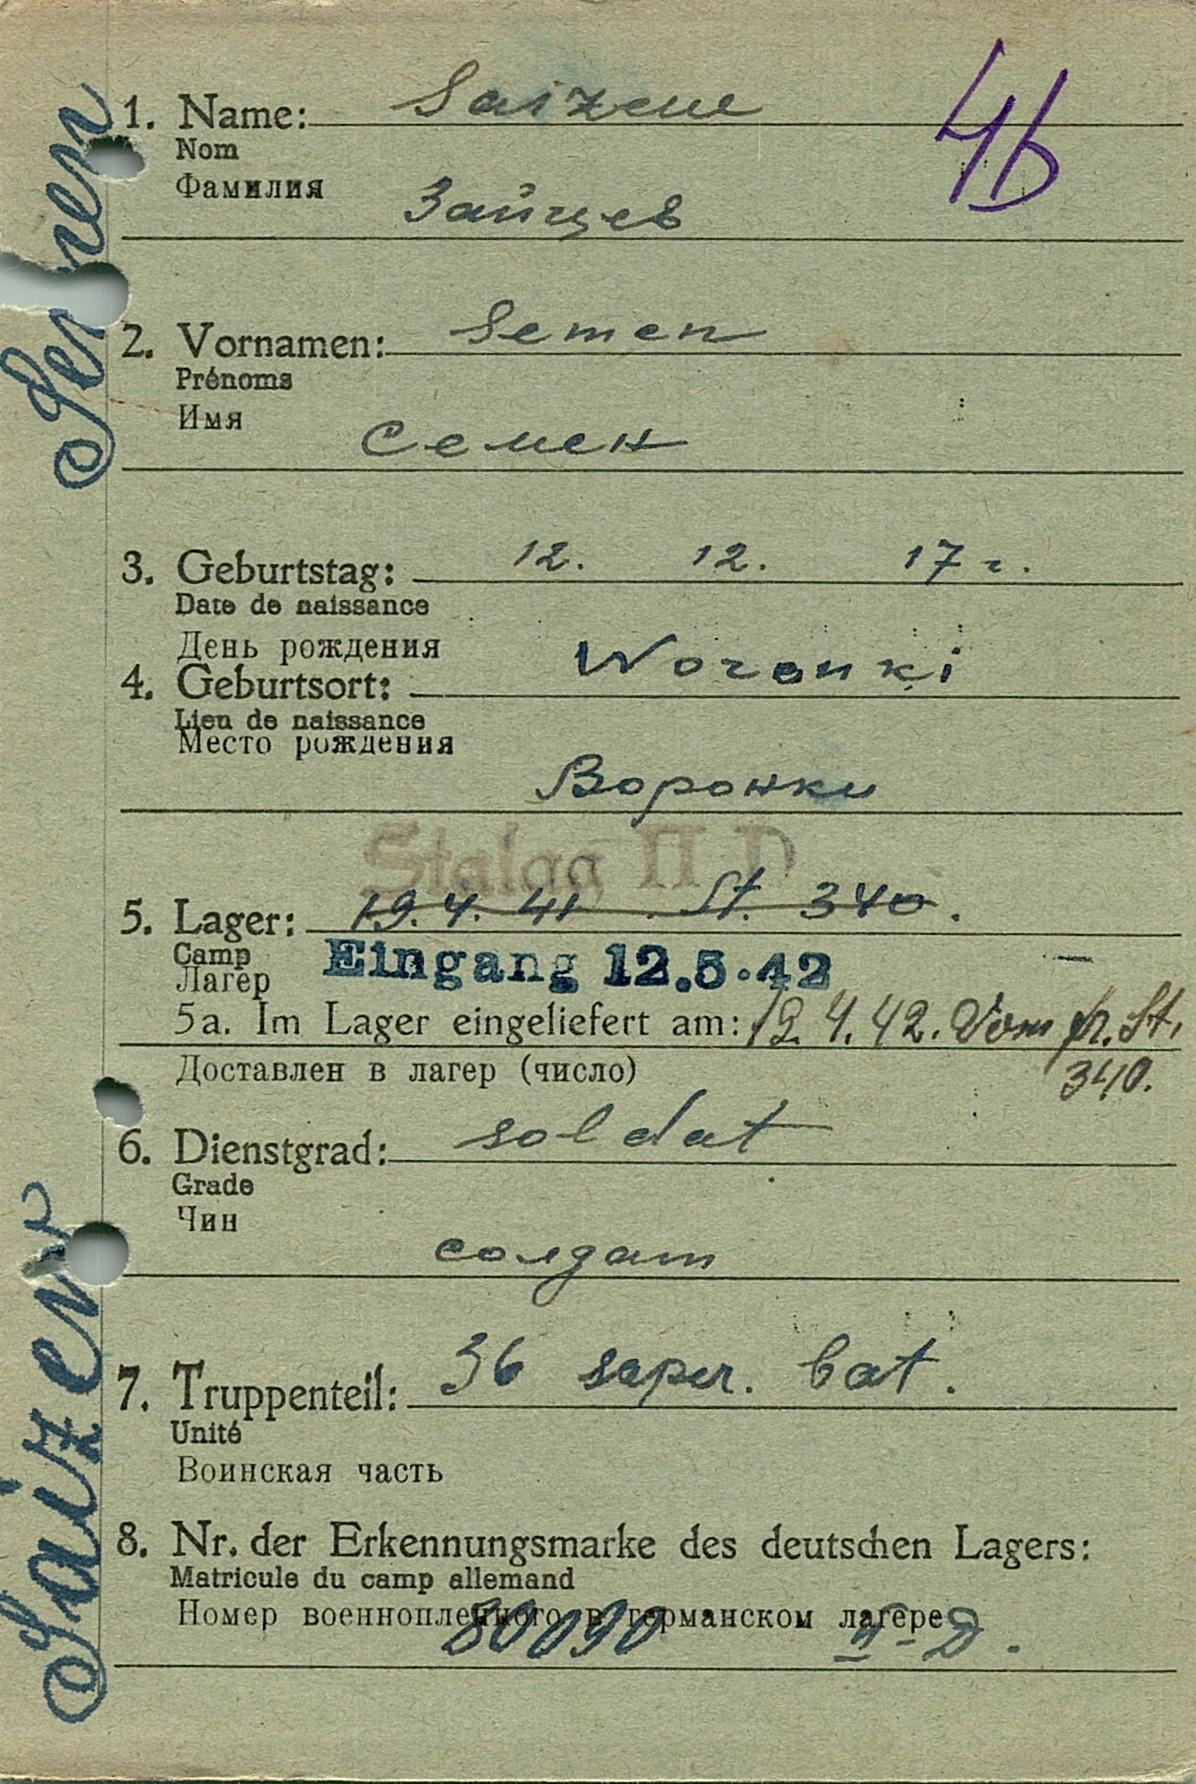 46
1. Name: Saizew
Nom
Фамилия
Зайцев
2. Vornamen: Semen
Prénoms
Имя
Семен
3. Geburtstag: 12. 12. 17 г.
Date de naissance
День рождения
4. Geburtsort: Woronki
Lieu de naissance
Место рождения
Воронки
Stalag II D
5. Lager: 19.4.41 St. 340.
Camp
Лагер
Eingang 12.5.42
5a. Im Lager eingeliefert am: 19.4.42. Vom fr. St.
340.
Доставлен в лагер (число)
6. Dienstgrad: soldat
Grade
Чин
солдат
7. Truppenteil: 36 saper. bat.
Unité
Воинская часть
8. Nr. der Erkennungsmarke des deutschen Lagers:
Matricule du camp allemand
Номер военнопленного в германском лагере
80090 II-D.
Saizew Semen